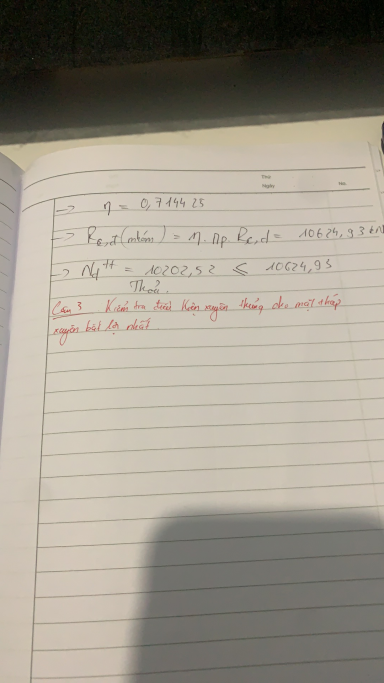 Thứ
Ngày No.
→ η = 0,714425
→ Rc,d (nhóm) = η. np. Rc,d = 10624,93 kN
→ N₁ᵗᵗ = 10202,52 ⩽ 10624,93
Thoả.
Câu 3 Kiểm tra điều kiện xuyên thủng do một tháp
xuyên bất lợi nhất